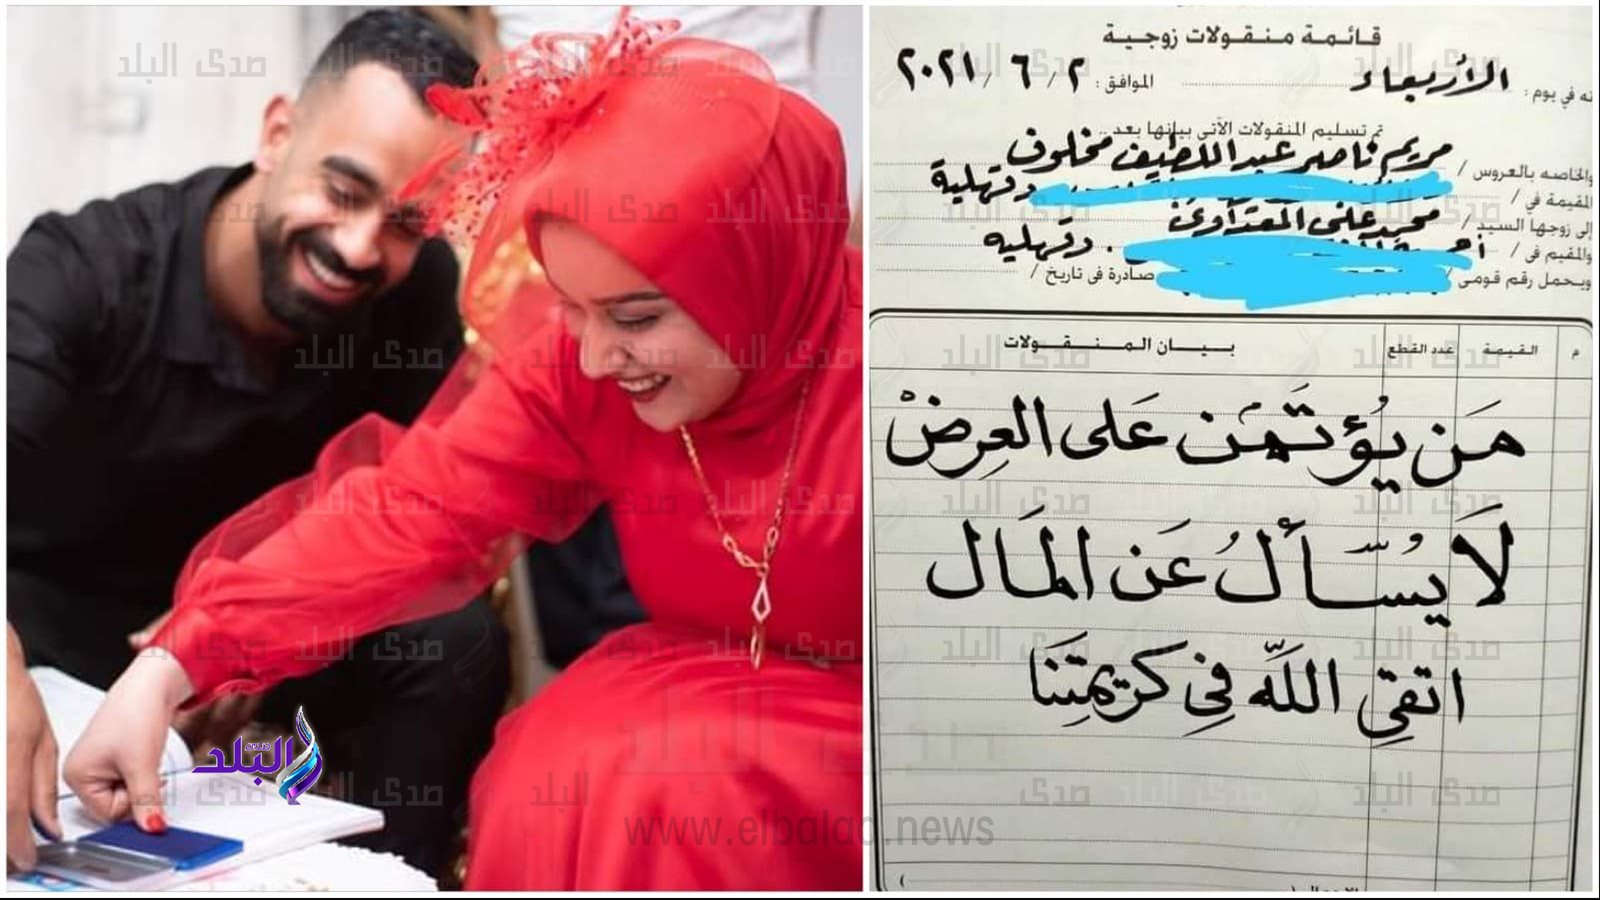 قائمة منقولات زوجية
نه في يوم : الأربعاء الموافق : ٢ / ٦ / ٢٠٢١
تم تسليم المنقولات الآتى بيانها بعد ..
والخاصه بالعروس / مريم ناصر عبد اللطيف مخلوف
المقيمة في / دقهلية
إلى زوجها السيد / محمد على المعداوى
والمقيم فى / دقهليه
ويحمل رقم قومى / صادرة فى تاريخ /
م القيمة عدد القطع بيـــان المـنـــقـــولات
مَن يُؤتَمَن عَلى العِرضْ
لَا يُسّأَلُ عَن المَال
اتقي اللَّه فِي كريمتِنَا
صدى البلد
www.elbalad.news